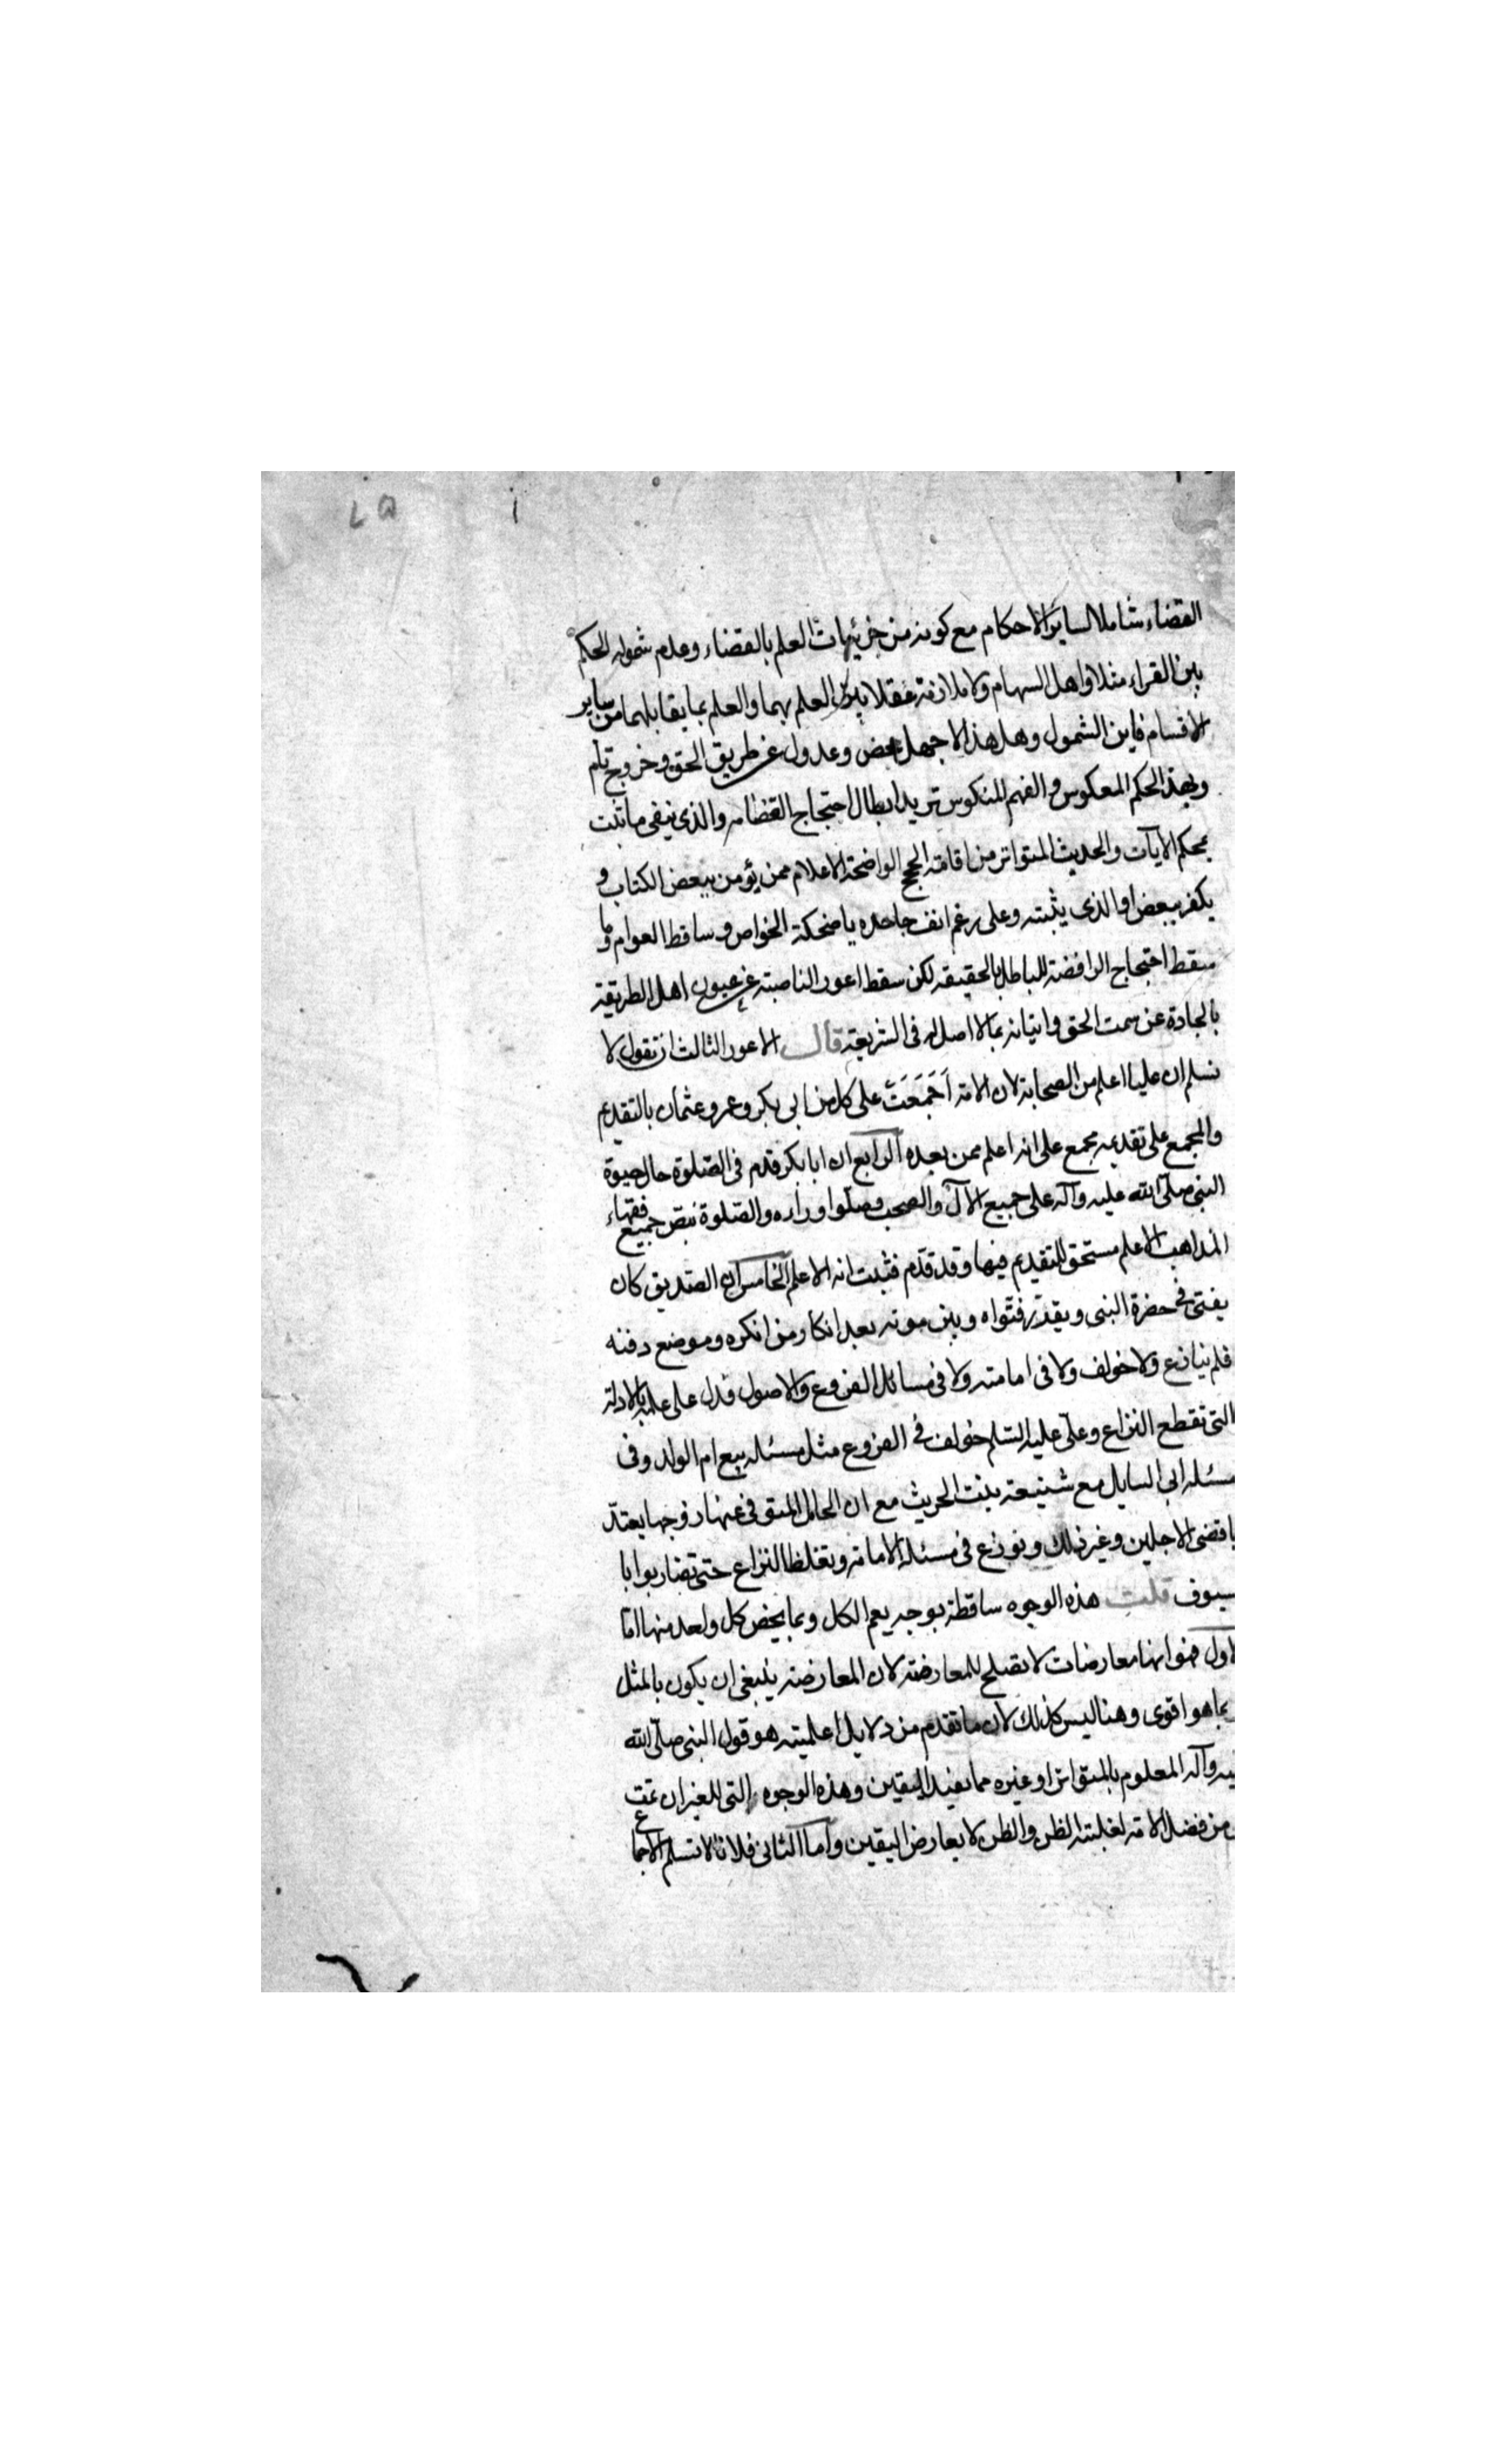 ٧٥
القضاء شاملا لساير الاحكام مع كونه من جزئيات العلم بالقضاء وعدم شموله للحكم
بين القراء مثلا واهل السهام ولا ملازمة عقلا بين العلم بهما والعلم بما يقابلهما من ساير
الاقسام فاين الشمول وهل هذا الا جهل محض وعدول عن طريق الحق وخروج تام
وبهذا الحكم المعكوس والفهم المنكوس تريد ابطال احتجاج الفضا والذى ينفى ما ثبت
بمحكم الآيات والحديث المتواتر من اقامة الحجج الواضحة الاعلام ممن يؤمن ببعض الكتاب و
يكفر ببعض او الذى يثبته وعلى رغم انف جاحده يا ضحكة الخواص وساقط العوام وما
سقط احتجاج الرافضة للباطل بالحقيقه لكن سقط اعور الناصبة عن عيون اهل الطريقة
بالجادة عن سمت الحق واتيانه بما لا اصل له فى الشريعة قال الاعور الثالث ان تقول لا
نسلم ان عليا اعلم من الصحابة لان الامة اَجْمَعَتْ على كل من ابى بكر وعمر وعثمان بالتقديم
والمجمع على تقديمه مجمع على انه اعلم ممن بعده الرابع ان ابا بكر قدم فى الصّلوة حال حيوة
النبى صلّى الله عليه وآله على جميع الآل والصحب وصلّوا وراءه والصّلوة بنصّ جميع فقهاء
المذاهب الاعلم مستحق للتقديم فيها وقد قدّم فثبت انه الاعلم الخامس ان الصّديق كان
يفتى فى حضرة النبى ويقدّر فتواه وبيّن موته بعد انكار من انكره وموضع دفنه
فلم ينازع ولا خولف ولا فى امامته ولا فى مسائل الفروع والاصول فدل على علمه بالادلة
التى تقطع النزاع وعلّى عليه السّلم خولف فى الفروع مثل مسئله بيع ام الولد وفى
مسئله ابى السنابل مع شنيعة بنت الحريث مع ان الحامل المتوفى عنها زوجها يعتدّ
باقضى الاجلين وغير ذلك ونوزع فى مسئلة الامامة وتغلظ النزاع حتى تضاربوا با
سيوف قلت هذه الوجوه ساقطة بوجه يعم الكل وبما يخص كل واحد منها امّا
لاول فهو انها معارضات لا تصلح للمعارضة لان المعارضة ينبغى ان يكون بالمثل
بما هو اقوى وهنا ليس كذلك لان ما تقدم من دلايل اعلميته هو قول النبى صلّى الله
ليه وآله المعلوم بالمتواتر او غيره مما يفيد اليقين وهذه الوجوه التى للغير ان تمت
من فضل الامة لغلبته الظن والظن لا يعارض اليقين وامّا الثانى فلانّا لا نسلم الاجماع